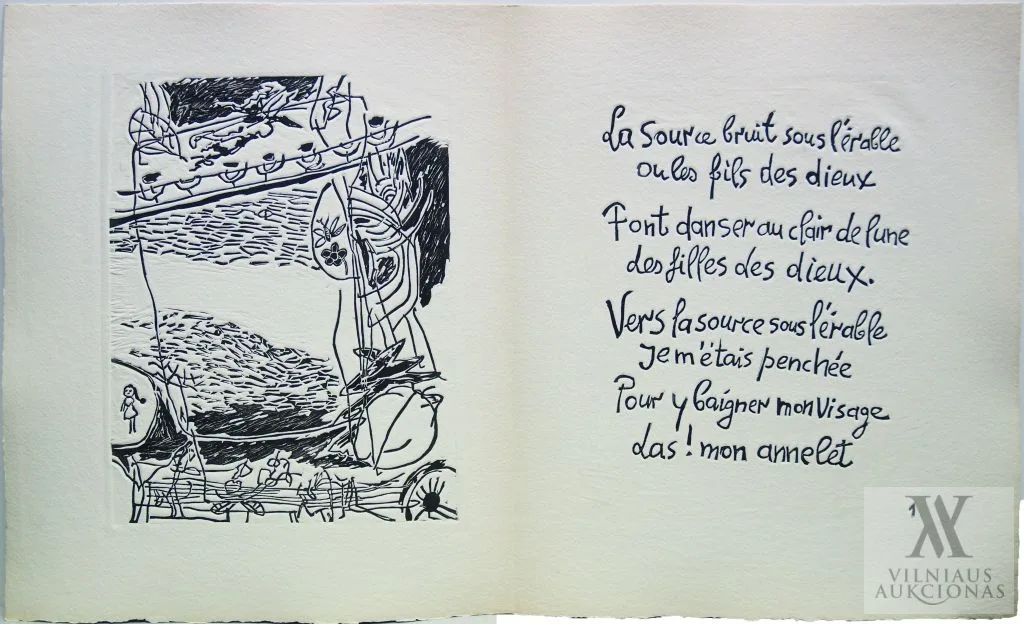 La source bruit sous l'érable
ou les fils des dieux
Font danser au clair de lune
des filles des dieux.
Vers la source sous l'érable
Je m'étais penchée
Pour y baigner mon visage
Las ! mon annelet
VILNIAUS
AUKCIONAS